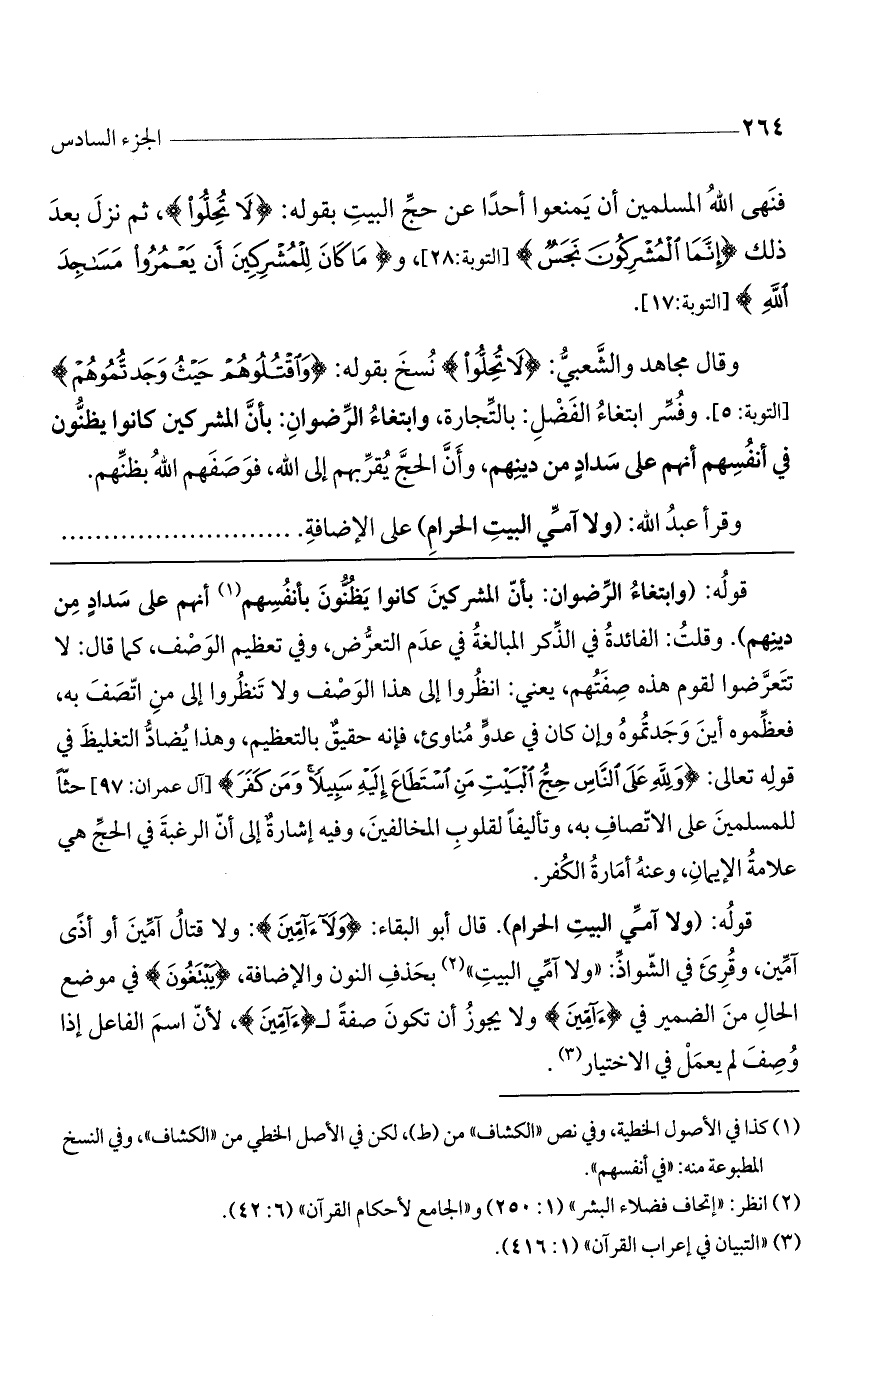 ٢٦٤ الجزء السادس
فنَهى اللهُ المسلمين أن يَمنعوا أحدًا عن حجِّ البيتِ بقوله: ﴿لَا تُحِلُّوا۟﴾، ثم نزلَ بعدَ
ذلك ﴿إِنَّمَا ٱلْمُشْرِكُونَ نَجَسٌ﴾ [التوبة:٢٨]، و﴿مَا كَانَ لِلْمُشْرِكِينَ أَن يَعْمُرُوا۟ مَسَـٰجِدَ
ٱللَّهِ﴾ [التوبة:١٧].
وقال مجاهد والشَّعبيُّ: ﴿لَا تُحِلُّوا۟﴾ نُسخَ بقوله: ﴿وَٱقْتُلُوهُمْ حَيْثُ وَجَدتُّمُوهُمْ﴾
[التوبة: ٥]. وفُسِّر ابتغاءُ الفَضْلِ: بالتِّجارة، وابتغاءُ الرِّضوانِ: بأنَّ المشركين كانوا يظنُّون
في أنفُسِهم أنهم على سَدادٍ من دينِهم، وأنَّ الحجَّ يُقرِّبهم إلى الله، فوَصَفَهم اللهُ بظنِّهم.
وقرأ عبدُ الله: (ولا آمِّي البيتِ الحرامِ) على الإضافةِ. ...........................
قولُه: (وابتغاءُ الرِّضوان: بأنّ المشركينَ كانوا يَظُنُّونَ بأنفُسِهم(١) أنهم على سَدادٍ مِن
دينِهم). وقلتُ: الفائدةُ في الذِّكر المبالغةُ في عدَم التعرُّض، وفي تعظيم الوَصْف، كما قال: لا
تتَعرَّضوا لقوم هذه صِفَتُهم، يعني: انظُروا إلى هذا الوَصْف ولا تَنظُروا إلى منِ اتّصَفَ به،
فعظِّموه أينَ وَجَدتُّموهُ وإن كان في عدوٍّ مُناوئ، فإنه حقيقٌ بالتعظيم، وهذا يُضادُّ التغليظَ في
قولِه تعالى: ﴿وَلِلَّهِ عَلَى ٱلنَّاسِ حِجُّ ٱلْبَيْتِ مَنِ ٱسْتَطَاعَ إِلَيْهِ سَبِيلًا ۚ وَمَن كَفَرَ﴾ [آل عمران: ٩٧] حثّاً
للمسلمينَ على الاتّصافِ به، وتأليفاً لقلوبِ المخالفينَ، وفيه إشارةٌ إلى أنّ الرغبةَ في الحجِّ هي
علامةُ الإيمانِ، وعنهُ أمَارةُ الكُفر.
قولُه: (ولا آمِّي البيتِ الحرام). قال أبو البقاء: ﴿وَلَآ ءَآمِّينَ﴾: ولا قتالُ آمِّينَ أو أذًى
آمِّين، وقُرِئَ في الشّواذِّ: «ولا آمِّي البيتِ»(٢) بحَذفِ النون والإضافة، ﴿يَبْتَغُونَ﴾ في موضع
الحالِ منَ الضمير في ﴿ءَآمِّينَ﴾ ولا يجوزُ أن تكونَ صفةً لـ﴿ءَآمِّينَ﴾، لأنّ اسمَ الفاعل إذا
وُصِفَ لم يعمَلْ في الاختيار(٣).
(١) كذا في الأصول الخطية، وفي نص «الكشاف» من (ط)، لكن في الأصل الخطي من «الكشاف»، وفي النسخ
المطبوعة منه: «في أنفسهم».
(٢) انظر: «إتحاف فضلاء البشر» (١: ٢٥٠) و«الجامع لأحكام القرآن» (٦: ٤٢).
(٣) «التبيان في إعراب القرآن» (١: ٤١٦).